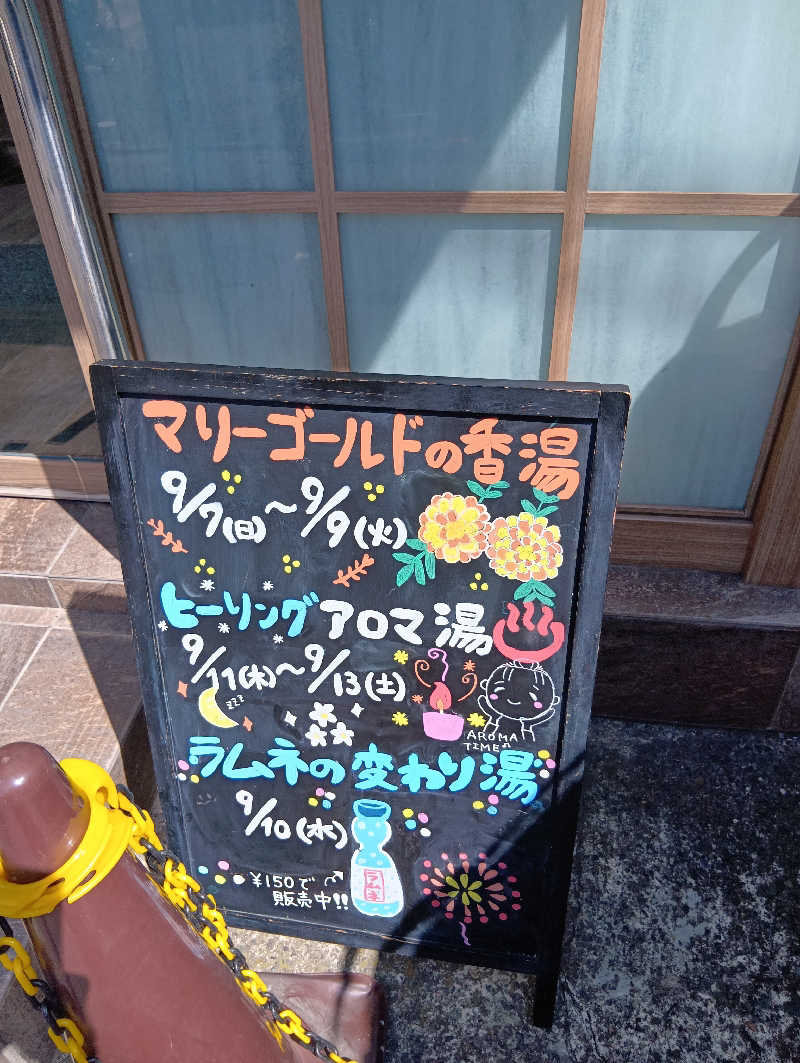 マリーゴールドの香湯
9/7(日)～9/9(火)
ヒーリングアロマ湯
9/11(木)～9/13(土)
zzz
AROMA
TIME♫
ラムネの変わり湯
9/10(水)
ラムネ
¥150で
販売中!!